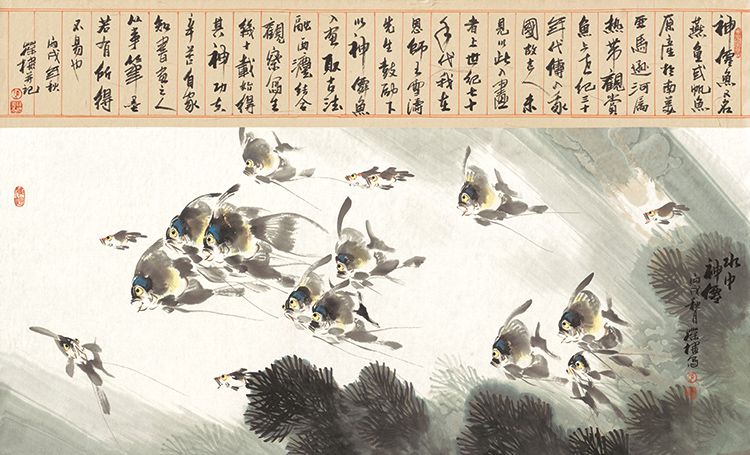 神僊魚又名
燕魚或帆魚
原產於南美
亞馬遜河屬
熱帶觀賞
魚上世紀三十
年代傳入我
國故古人未
見以此入畫
者上世紀七十
年代我在
恩師王雪濤
先生鼓勵下
以神僊魚
入畫取古法
融西結合
觀察寫生
幾十載始得
其神功夫
辛苦自家
知書畫之人
事筆墨
若有所得
不易也
丙戌秋
并記
水中
神僊
丙戌秋月寫